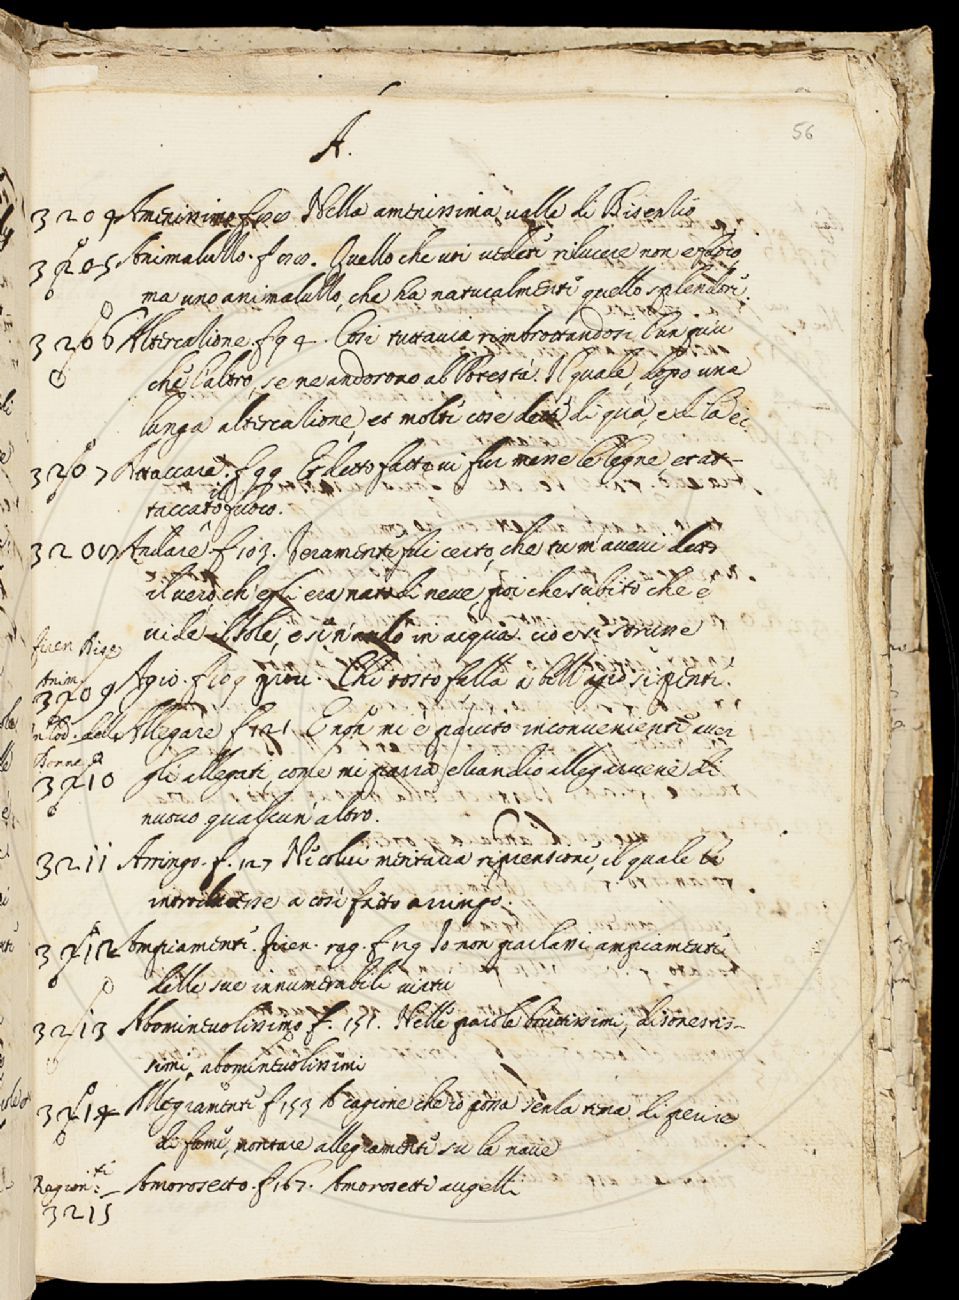 56
A.
3204 Amenissimo f Nella amenissima valle di Bisentio
3205 Animalullo. f Quello che voi vedete rilucere non e
ma uno animalullo, che ha naturalmente quello splendore
3206 Altercatione. f 94. Cosi tuttavia rimbrottandosi l'un
che l'altro, se ne andorono al Potestà. Il quale, dopo una
lunga altercatione, et molte cose dette di qua, e di la ec
3207 Attaccare. f 99. Et detto fatto vi fur messe le legne, et at-
taccato il fuoco.
3208 Andare f 103. Veramente fuli certo, che tu m'avevi detto
il vero, ch'egli era nato di neve, poi che subito che e
vide il Sole, e si n'andò in acqua. cioè si strusse
Firen Rag
Anim.
3209 Agio. f 109 Chi tosto falla a bell'agio si penti.
in Lod. delle Allegare f 121. E non mi è paruto inconveniente aver
Donne
3210 gli allegati, come mi parrà etiandio allegarvene di
nuovo qualcun'altro.
3211 Arringo. f. 127 Nicolui meritava riprensione, il quale
introdusse a cosi fatto aringo.
3212 Ampiamente. Firen. rag. f 129 Io non parlassi ampiamente
delle sue innumerabile virtu
3213 Abominevolissimo f. 151. Nelle parole bruttissime, disonestis-
sime, abominevolissime
3214 Allegramente f 153 cagione che io possa senza tema di
di fame, montare allegramente su la nave
Ragion.ti Amorosetto. f 167. Amorosetti augelli
3215